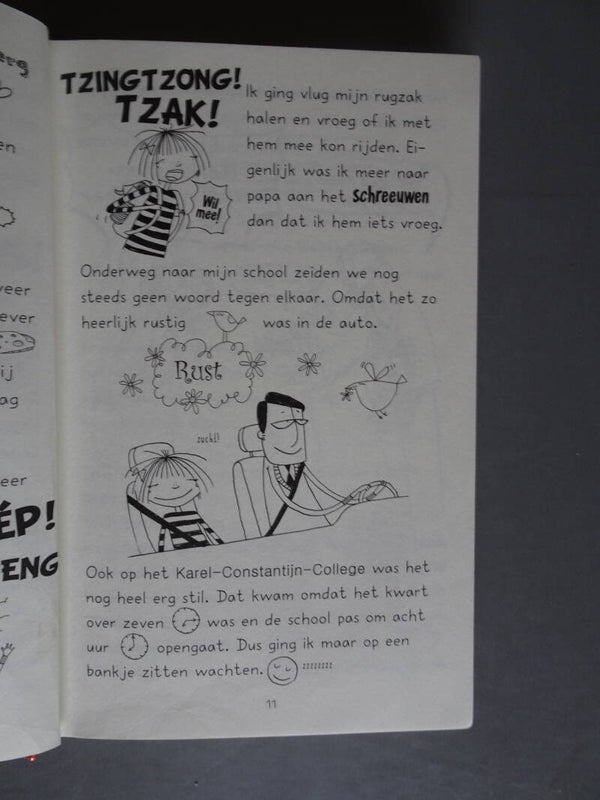 erg
en
veer
ever
ij
ag
eer
ÉP!
ENG
TZINGTZONG!
TZAK!
Wil
mee!
Ik ging vlug mijn rugzak
halen en vroeg of ik met
hem mee kon rijden. Ei-
genlijk was ik meer naar
papa aan het schreeuwen
dan dat ik hem iets vroeg.
Onderweg naar mijn school zeiden we nog
steeds geen woord tegen elkaar. Omdat het zo
heerlijk rustig was in de auto.
Rust
zucht!
Ook op het Karel-Constantijn-College was het
nog heel erg stil. Dat kwam omdat het kwart
over zeven was en de school pas om acht
uur opengaat. Dus ging ik maar op een
bankje zitten wachten. zzzzzzzz
11